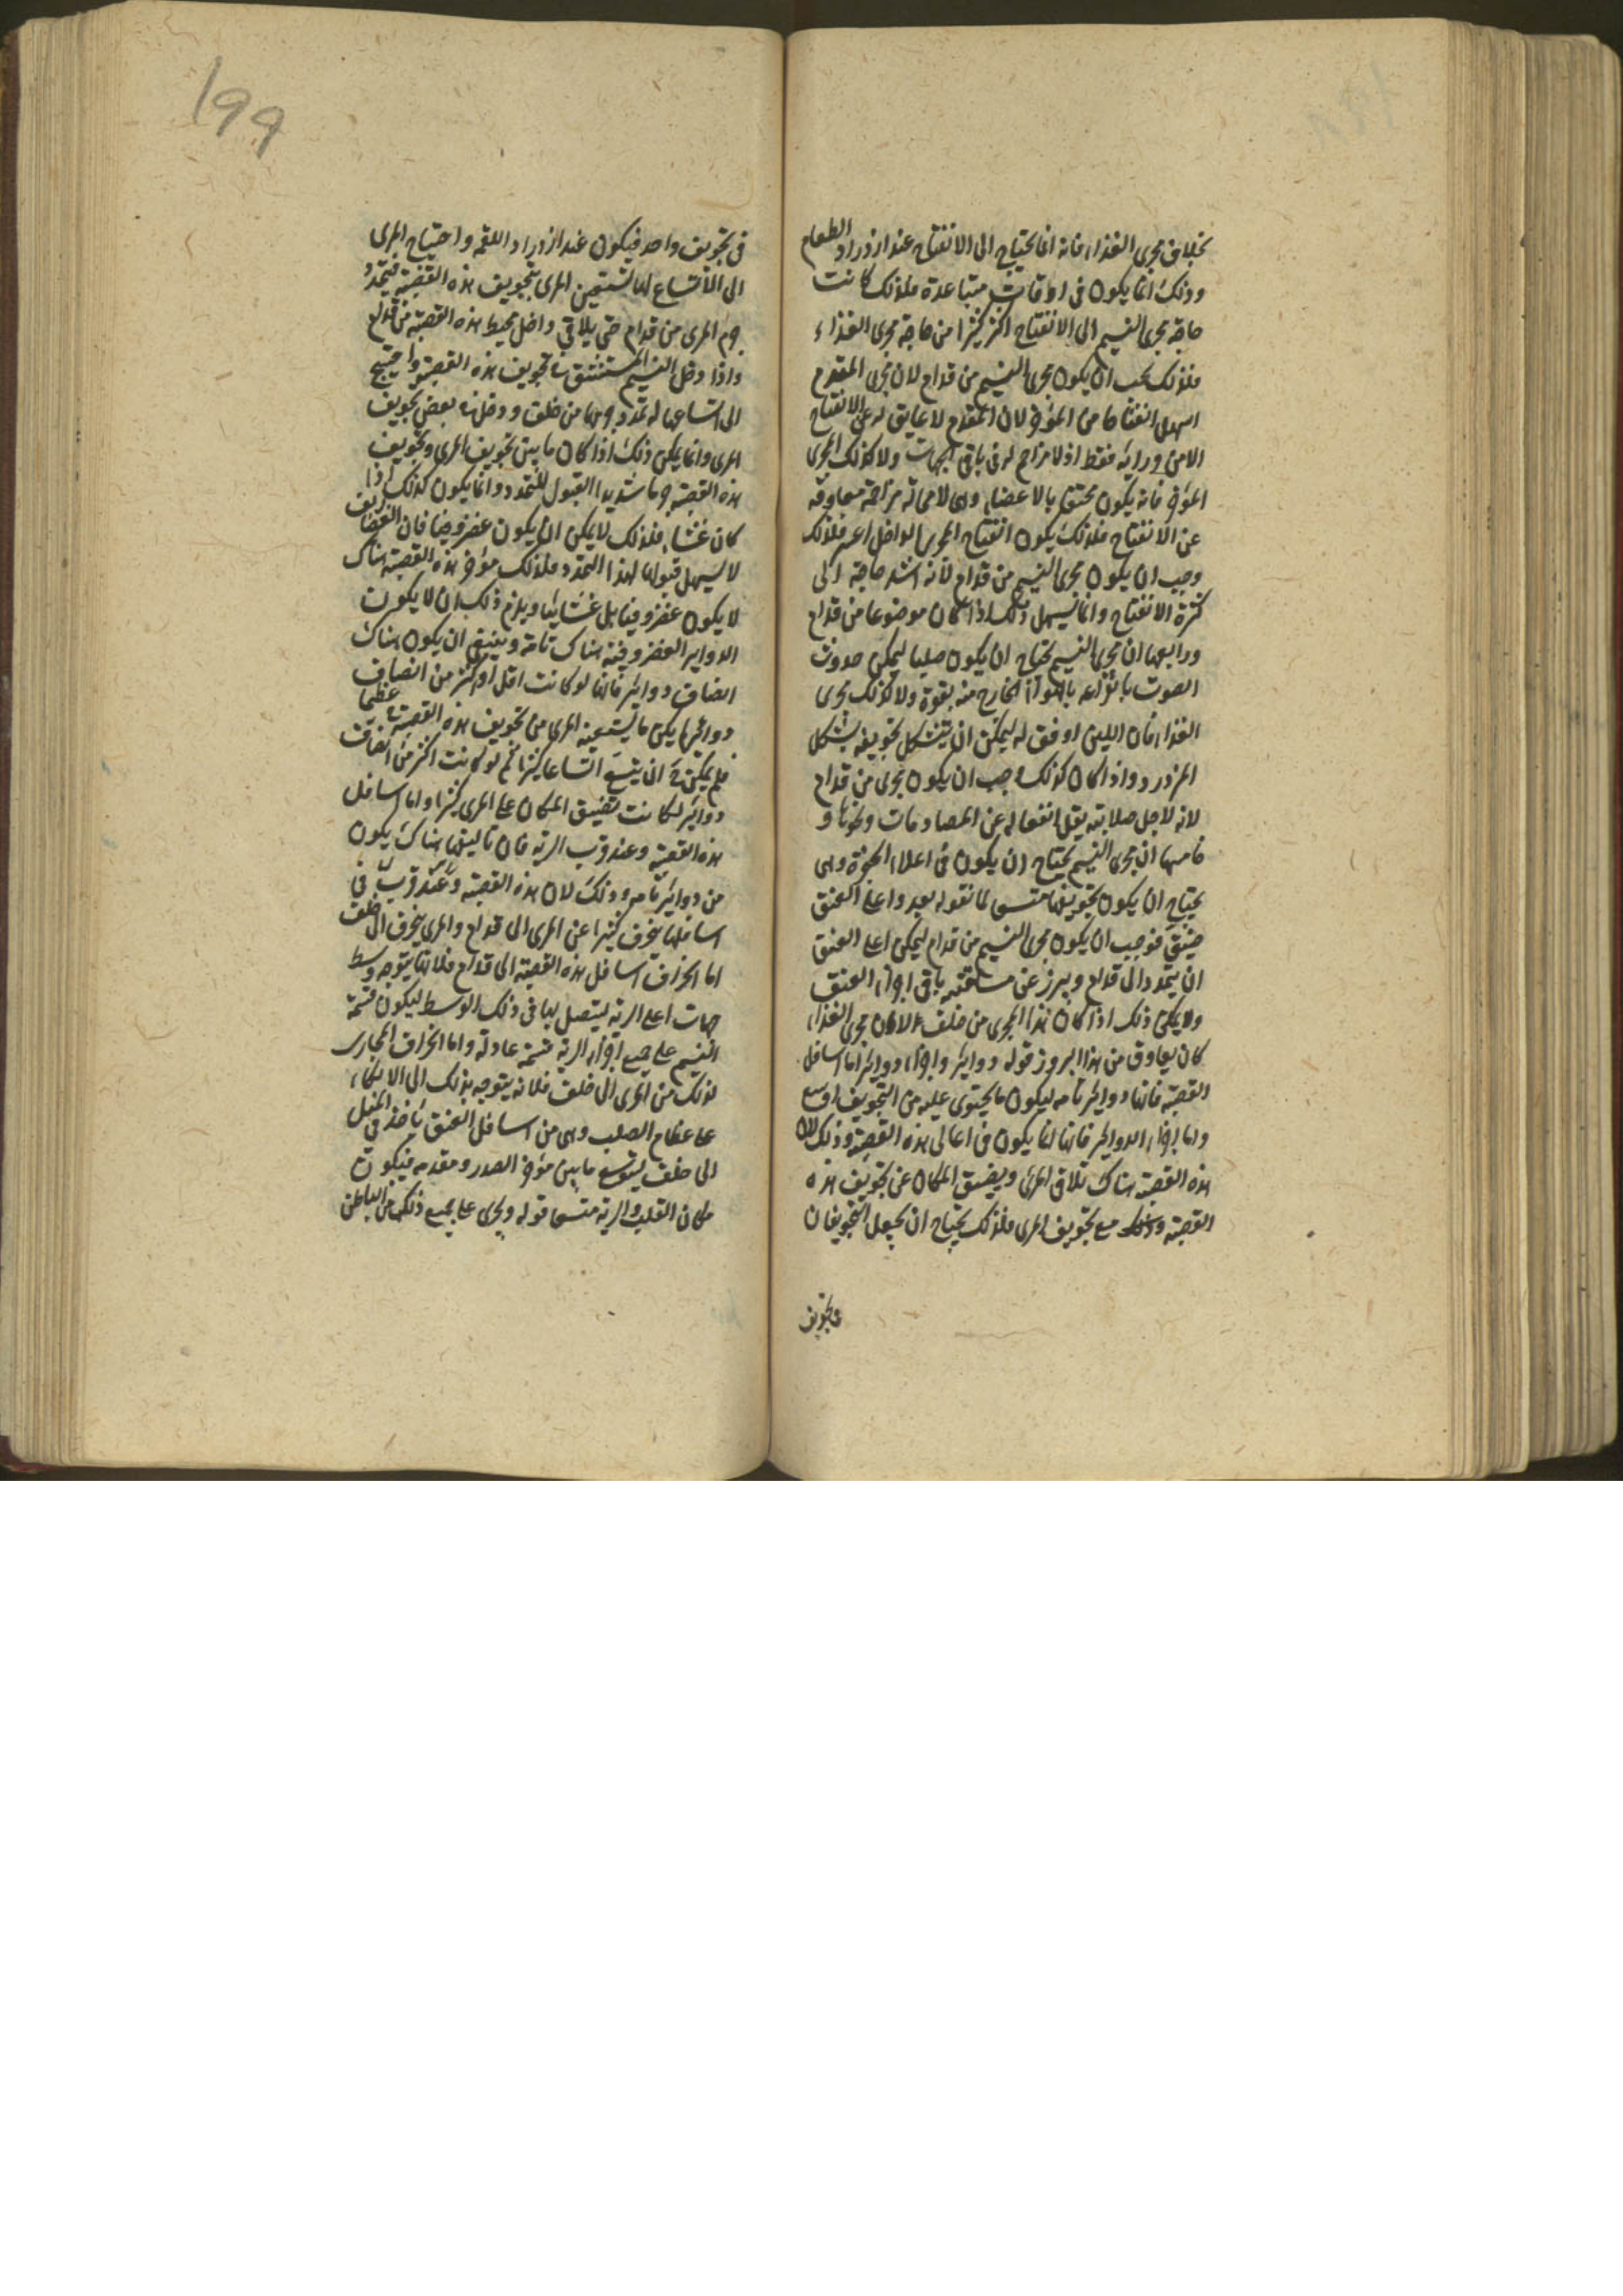 بخلاف مجرى الغذاء فانه انما يحتاج الى الانفتاح عند ازدراد الطعام
وذلك انما يكون فى اوقات متباعدة فلذلك كانت
حاجة مجرى النسيم الى الانفتاح اكثر كثيرا من حاجة مجرى الغذاء
فلذلك يجب ان يكون مجرى النسيم من قدام لان مجرى المقدم
اسهل انفتاحا من المؤخر لان المقدم لا عايق له عن الانفتاح
الا من ورائه فقط اذ لا مزاحم له فى باقى الجهات ولا كذلك المجرى
المؤخر فانه يكون محتفا بالاعضاء وهى لا محالة مزاحمة معاوقة
عن الانفتاح فلذلك يكون انفتاح المجرى الداخل اعسر فلذلك
وجب ان يكون مجرى النسيم من قدام لانه اشد حاجة الى
كثرة الانفتاح وانما يسهل ذلك اذا كان موضوعا من قدام
ورابعها ان مجرى النسيم يحتاج ان يكون صلبا ليمكن حدوث
الصوت بانقراعه بالهواء الخارج منه بقوة ولا كذلك مجرى
الغذاء فان اللين اوفق له ليمكن ان يتشكل تجويفه بشكل
المزدرد واذا كان كذلك وجب ان يكون مجرى من قدام
لانه لاجل صلابته يقل انفعاله عن المصادمات ونحوها و
خامسها ان مجرى النسيم يحتاج ان يكون فى اعلاه الحنجرة وهى
يحتاج ان يكون تجويفها متسعا لما نقوله بعد واعلا العنق
ضيق فوجب ان يكون مجرى النسيم من قدام ليمكن اعلا العنق
ان يتمدد الى قدام ويبرز عن مسامتة باقى اجزاء العنق
ولا يمكن ذلك اذا كان هذا المجرى من خلف والا كان مجرى الغذاء
كان يعاوق من هذا البروز قوله دوائر واجزاء دوائر اما اسافل
القصبة فانها دوائر تامه ليكون ما يحتوى عليه من التجويف اوسع
واما اجزاء الدوائر فانها انما يكون فى اعالى هذه القصبة وذلك لان
هذه القصبة هناك تلاقى المرى ويضيق المكان عن تجويف هذه
القصبة وذلك مع تجويف المرى فلذلك يحتاج ان يجعل التجويفان
فى تجويف
199
فى تجويف واحد فيكون عند ازدراد اللقمه واحتياج المرى
الى الاتساع لها لتستعين المرى بتجويف هذه القصبة فيتمدد
جرم المرى من قدام حتى يلاقى داخل محيط هذه القصبة من قدام
واذا دخل النسيم المستنشق فى تجويف هذه القصبة واحتيج
الى اتساعها له تمدد جرمها من خلف ودخل فى بعض تجويف
المرى وانما يمكن ذلك اذا كان ما بين تجويف المرى وتجويف
هذه القصبة جرما شديد القبول للتمدد وانما يكون كذلك اذا
كان غشاء فلذلك لا يمكن ان يكون غضروفيا فان الغضاريف
لا يسهل قبولها لهذا التمدد فلذلك مؤخر هذه القصبة هناك
لا يكون غضروفيا بل غشائيا ويلزم ذلك ان لا يكون
الدواير الغضروفية هناك تامة وينبغى ان يكون هناك
انصاف دوائر فانها لو كانت اقل او اكثر من انصاف
دوائر لم يكن ما يستعينه المرى من تجويف هذه القصبة عظيما
فلم يمكن ح ان يتسع اتساعا كثيرا ثم لو كانت اكثر من انصاف
دوائر لكانت تضيق المكان على المرى كثيرا واما اسافل
هذه القصبة وعند قرب الرية فان تاليفها هناك يكون
من دوائر تامه وذلك لان هذه القصبة وعند قرب فى
اسافلها ينحرف كثيرا عن المرى الى قدام والمرى ينحرف الى خلف
اما انحراف اسافل هذه القصبة الى قدام فلانها يتوجه وسط
جهات اعلى الرية ليتصل بها فى ذلك الوسط ليكون قسمة
النسيم على جميع اجزاء الرية قسمة عادلة واما انحراف المحارى
لذلك من المرى الى خلف فلانه يتوجه بذلك الى الاتكاء
على عظام الصلب وهى من اسافل العنق تاخذ فى الميل
الى خلف ليتوسع ما بين مؤخر الصدر ومقدمه فيكون
مكان القلب والرية متسعا قوله ويجرى على جميع ذلك من الباطن